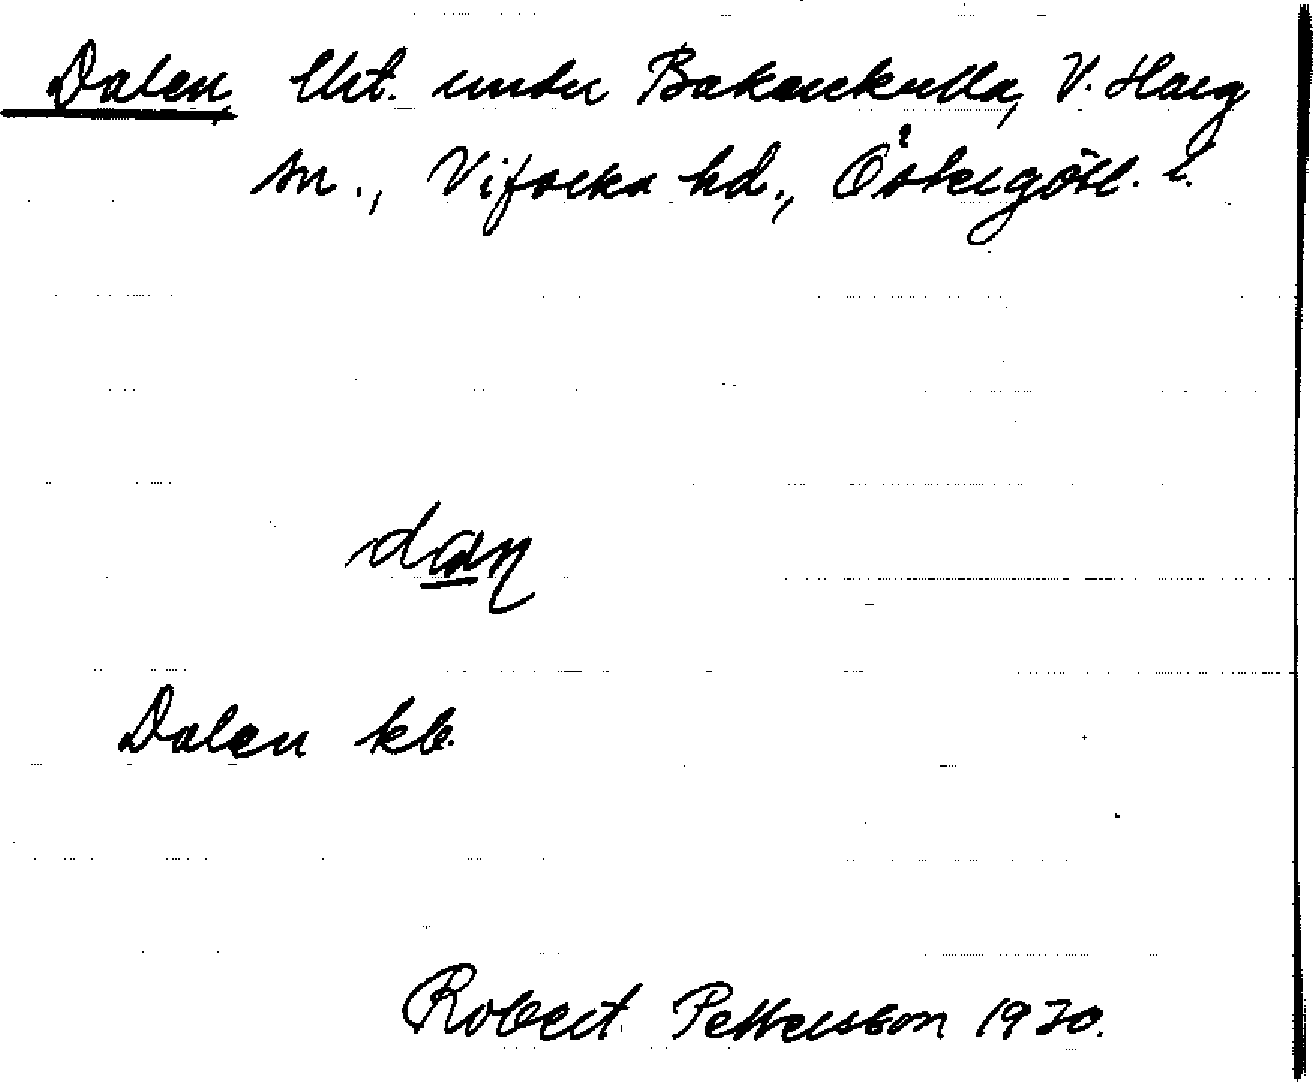 Dalen, lht. under Bakarekulla, V. Harg
sn., Vifolka hd., Östergötl. l.
dan
Dalen kb.
Robert Pettersson 1930.